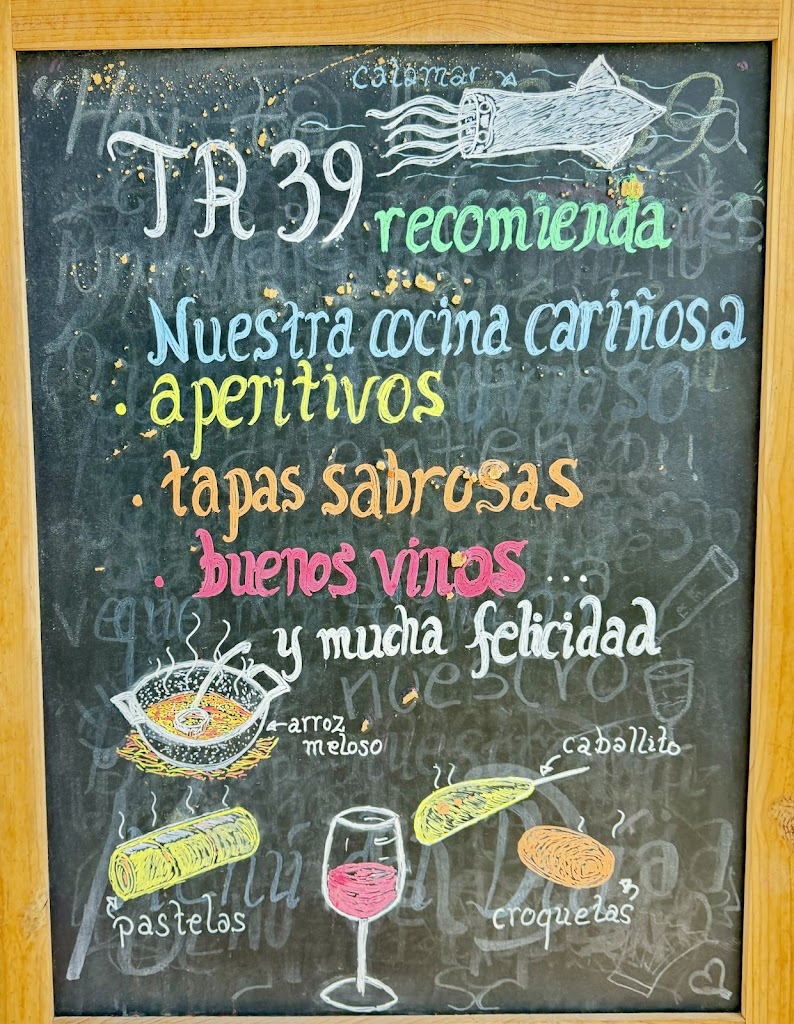 calamar
TR 39
recomienda
Nuestra cocina cariñosa
· aperitivos
· tapas sabrosas
· buenos vinos ...
y mucha felicidad
arroz
meloso
caballito
pastelas
croquetas